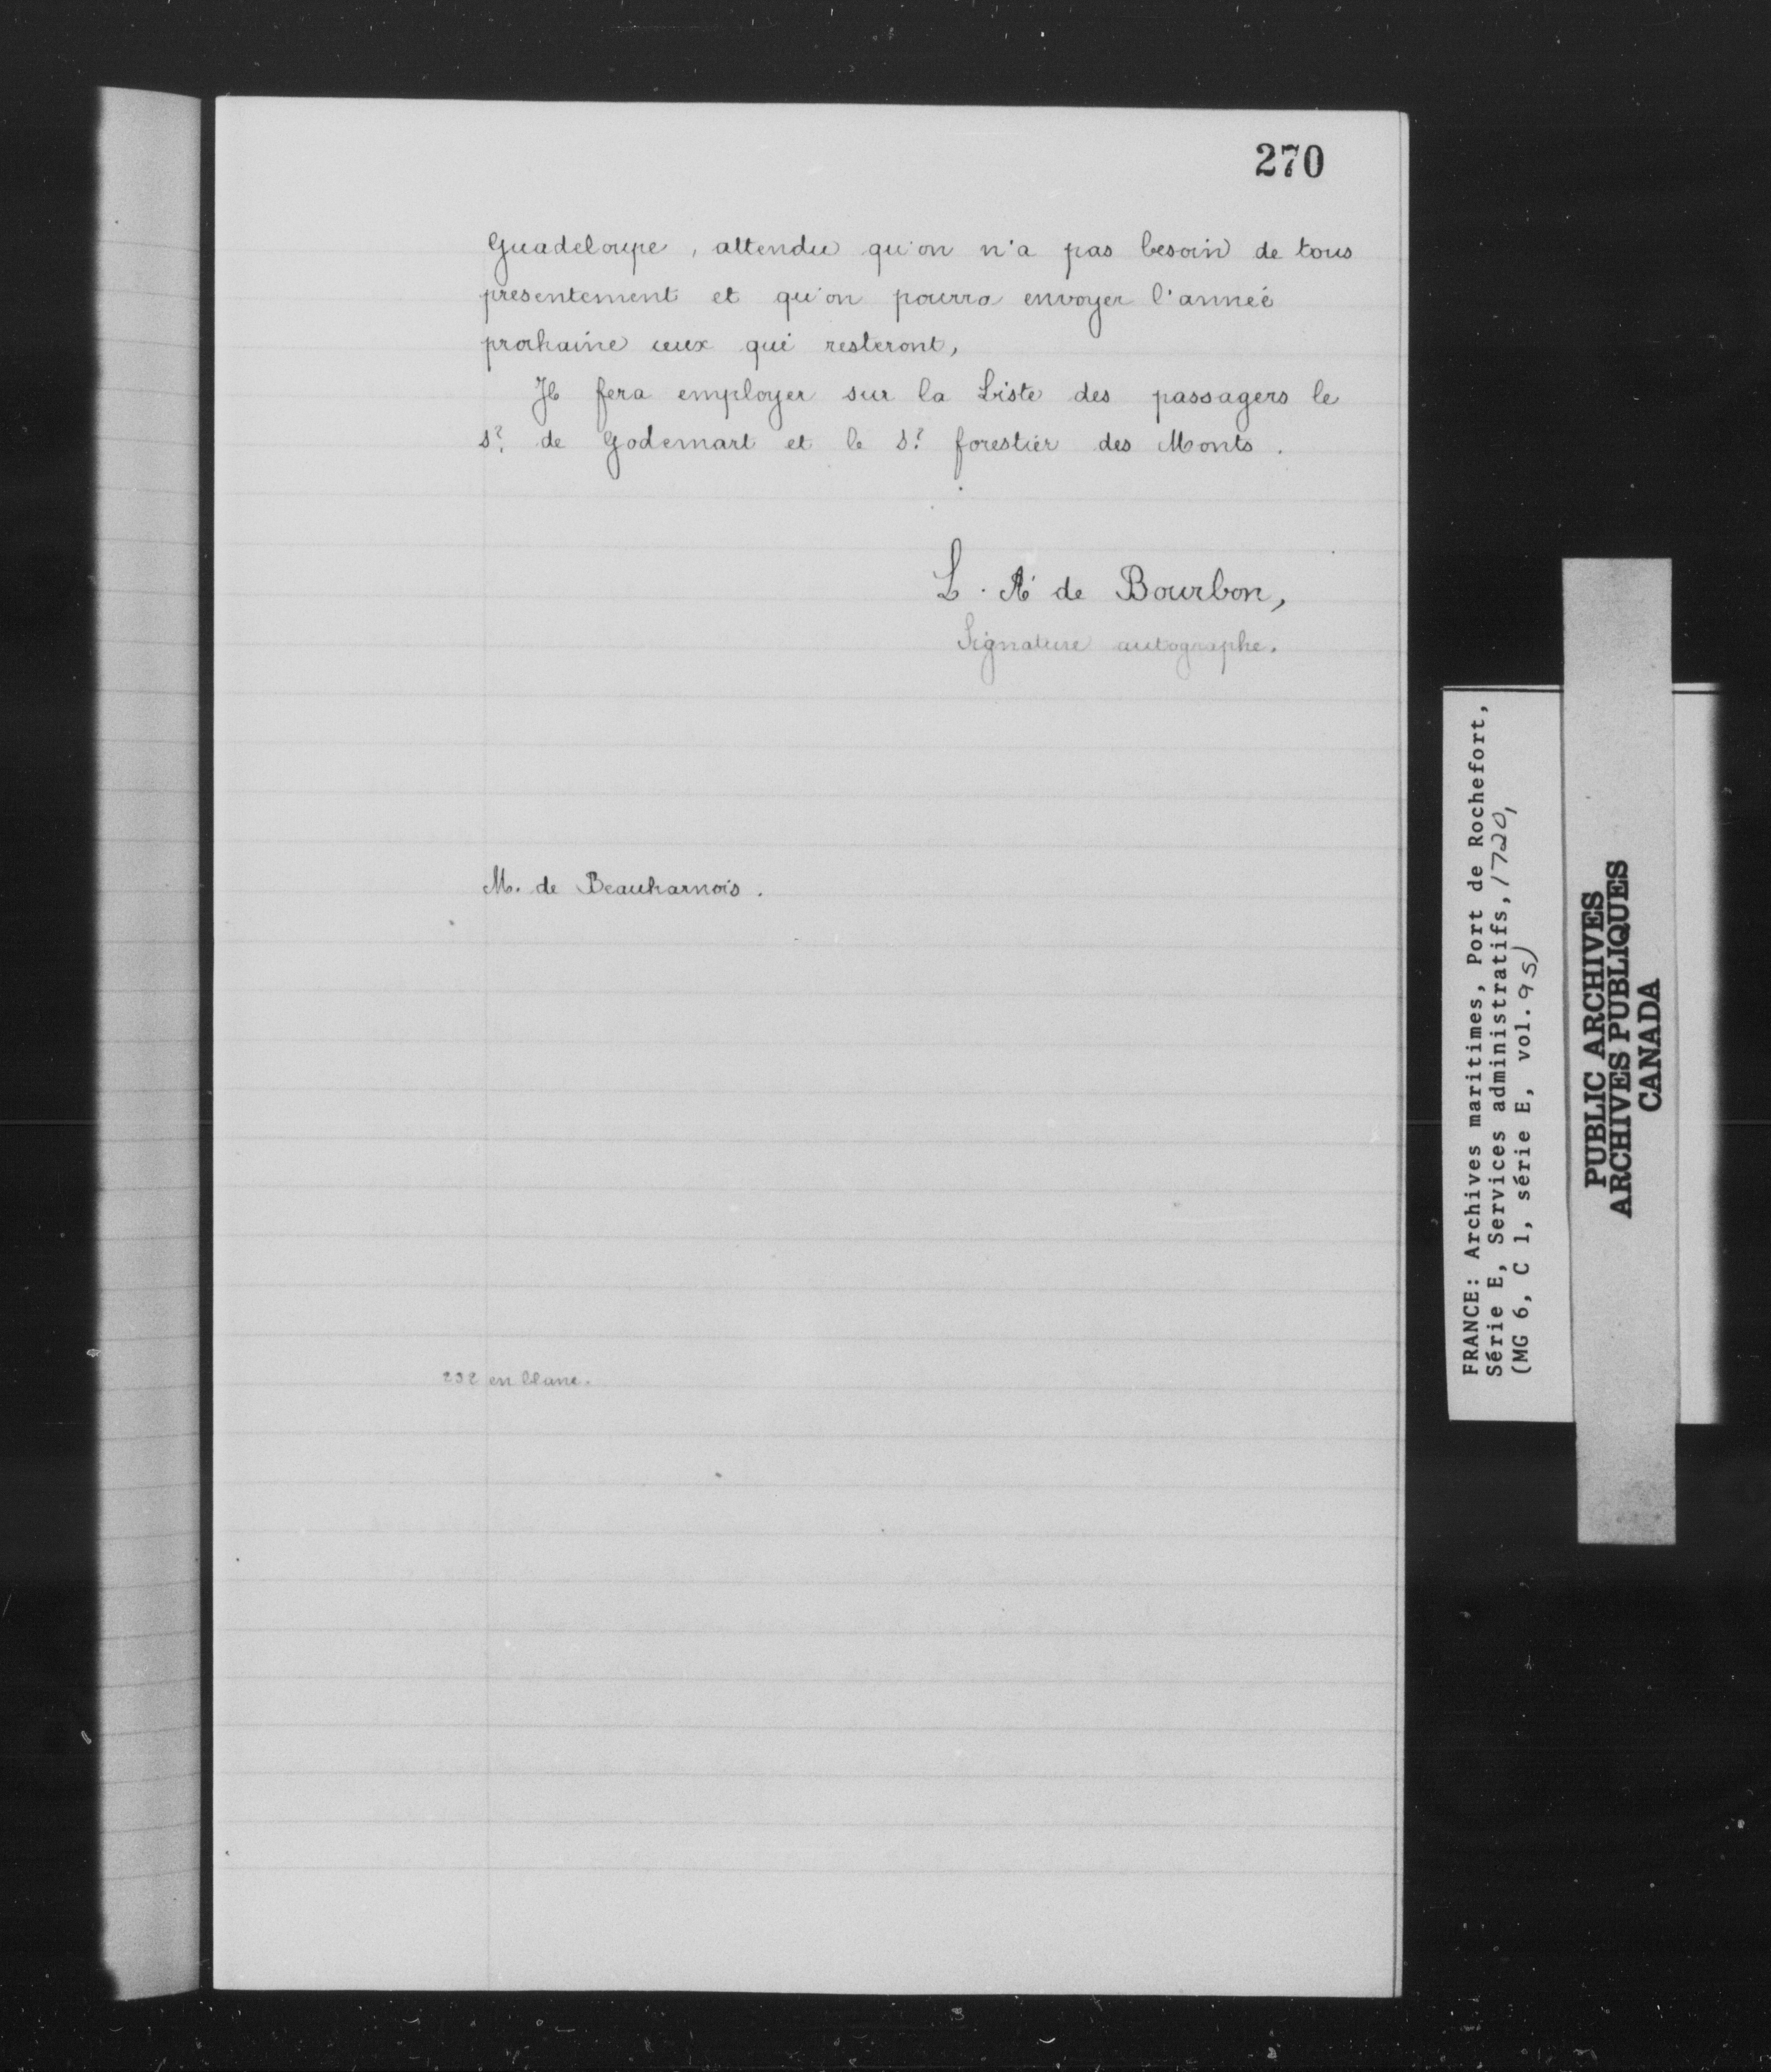 270
Guadeloupe, attendu qu'on n'a pas besoin de tous
presentement et qu'on pourra envoyer l'année
prochaine ceux qui resteront,
Il fera employer sur la Liste des passagers le
Sr. de Godemart et le Sr. forestier des Monts.
L. A. de Bourbon,
Signature autographe.
M. de Beauharnois.
232 en blanc.
FRANCE: Archives maritimes, Port de Rochefort,
Série E, Services administratifs, 1720,
(MG 6, C 1, série E, vol. 95)
PUBLIC ARCHIVES
ARCHIVES PUBLIQUES
CANADA